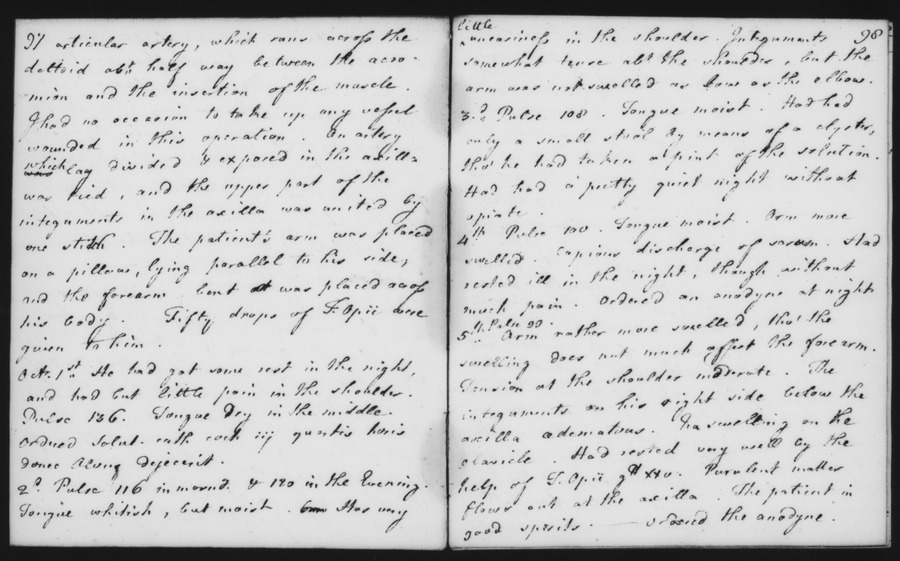 97 articular artery, which runs across the
deltoid abt half way between the acro-
mion and the insertion of the muscle.
I had no occasion to take up any vessel
wounded in this operation. An artery
which lay divided & exposed in the axilla
was tied, and the upper part of the
integuments in the axilla was united by
one stitch. The patient's arm was placed
on a pillow, lying parallel to his side,
and the forearm bent was placed across
his body. Fifty drops of T. Opii were
given to him.
Oct. 1st He had got some rest in the night,
and had but little pain in the shoulder.
Pulse 136. Tongue dry in the middle.
Ordered Solut. cath. coch iij quartis horis
donec alvus dejecerit.
2d Pulse 116 in mornd. & 120 in the Evening.
Tongue whitish, but moist. Has very
little 98
uneasiness in the shoulder. Integuments
somewhat tense abt the shoulder, but the
arm was not swelled as low as the elbow.
3.d Pulse 108. Tongue moist. Had had
only a small stool by means of a clyster,
tho' he had taken a pint of the solution.
Had had a pretty quiet night without
opiate.
4th Pulse 100. Tongue moist. Arm more
swelled. Copious discharge of serum. Had
rested ill in the night, though without
much pain. Ordered an anodyne at night.
5th. Pulse 90. Arm rather more swelled, tho' the
swelling does not much affect the forearm.
Tension at the shoulder moderate. The
integuments on his right side below the
axilla oedematous. No swelling on the
clavicle. Had rested very well by the
help of T. Opii gtt xxv. Purulent matter
flows out at the axilla. The patient in
good spirits. — Ordered the anodyne.